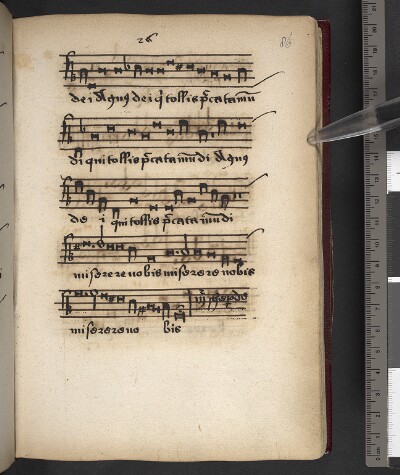 26 86
dei Agnus dei q tollis pccata mu
di qui tollis pccata mu di Agnus
de i qui tollis pccata mu di
miserere nobis miserere nobis
miserere no bis